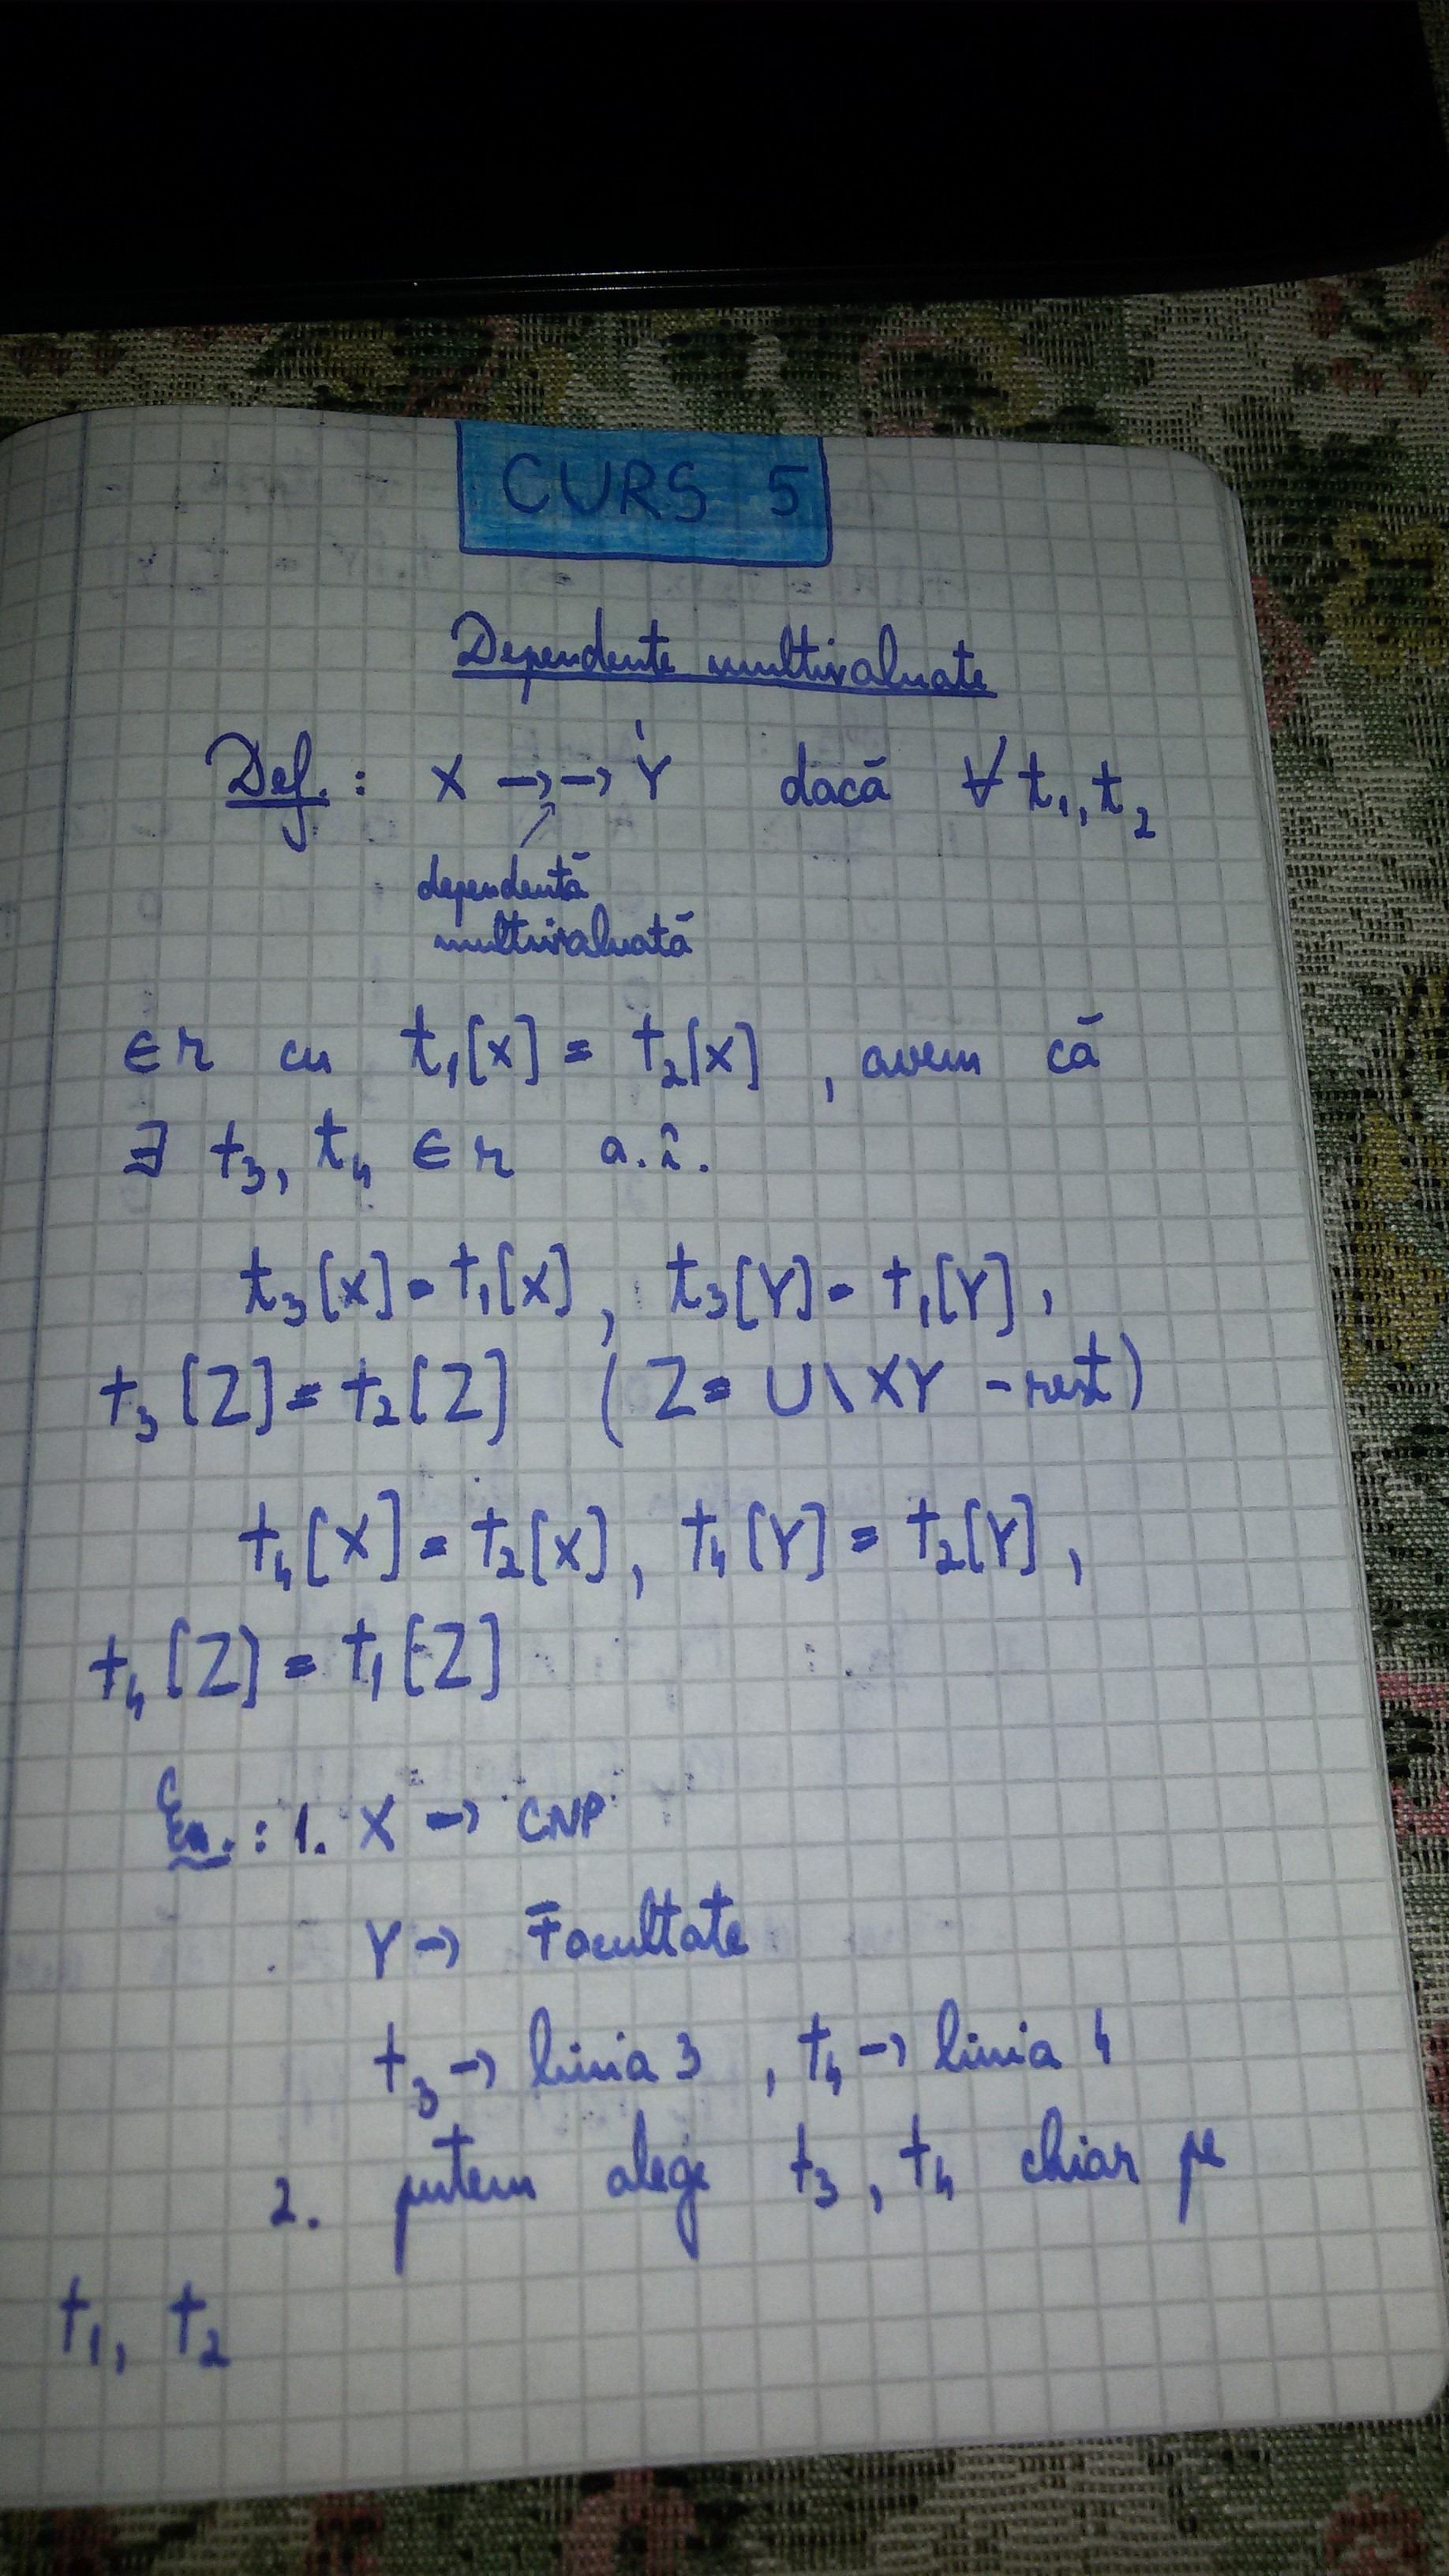 CURS 5
Dependente multivaluate
Def.: X →→ Y dacă ∀ t₁, t₂
dependentă
multivaluată
∈ r cu t₁[X] = t₂[X], avem că
∃ t₃, t₄ ∈ r a.î.
t₃[X] = t₁[X], t₃[Y] = t₁[Y],
t₃[Z] = t₂[Z] (Z = U\XY - rest)
t₄[X] = t₂[X], t₄[Y] = t₂[Y],
t₄[Z] = t₁[Z]
Ex.: 1. X → CNP
Y → Facultate
t₃ → linia 3, t₄ → linia 4
2. putem alege t₃, t₄ chiar pe
t₁, t₂